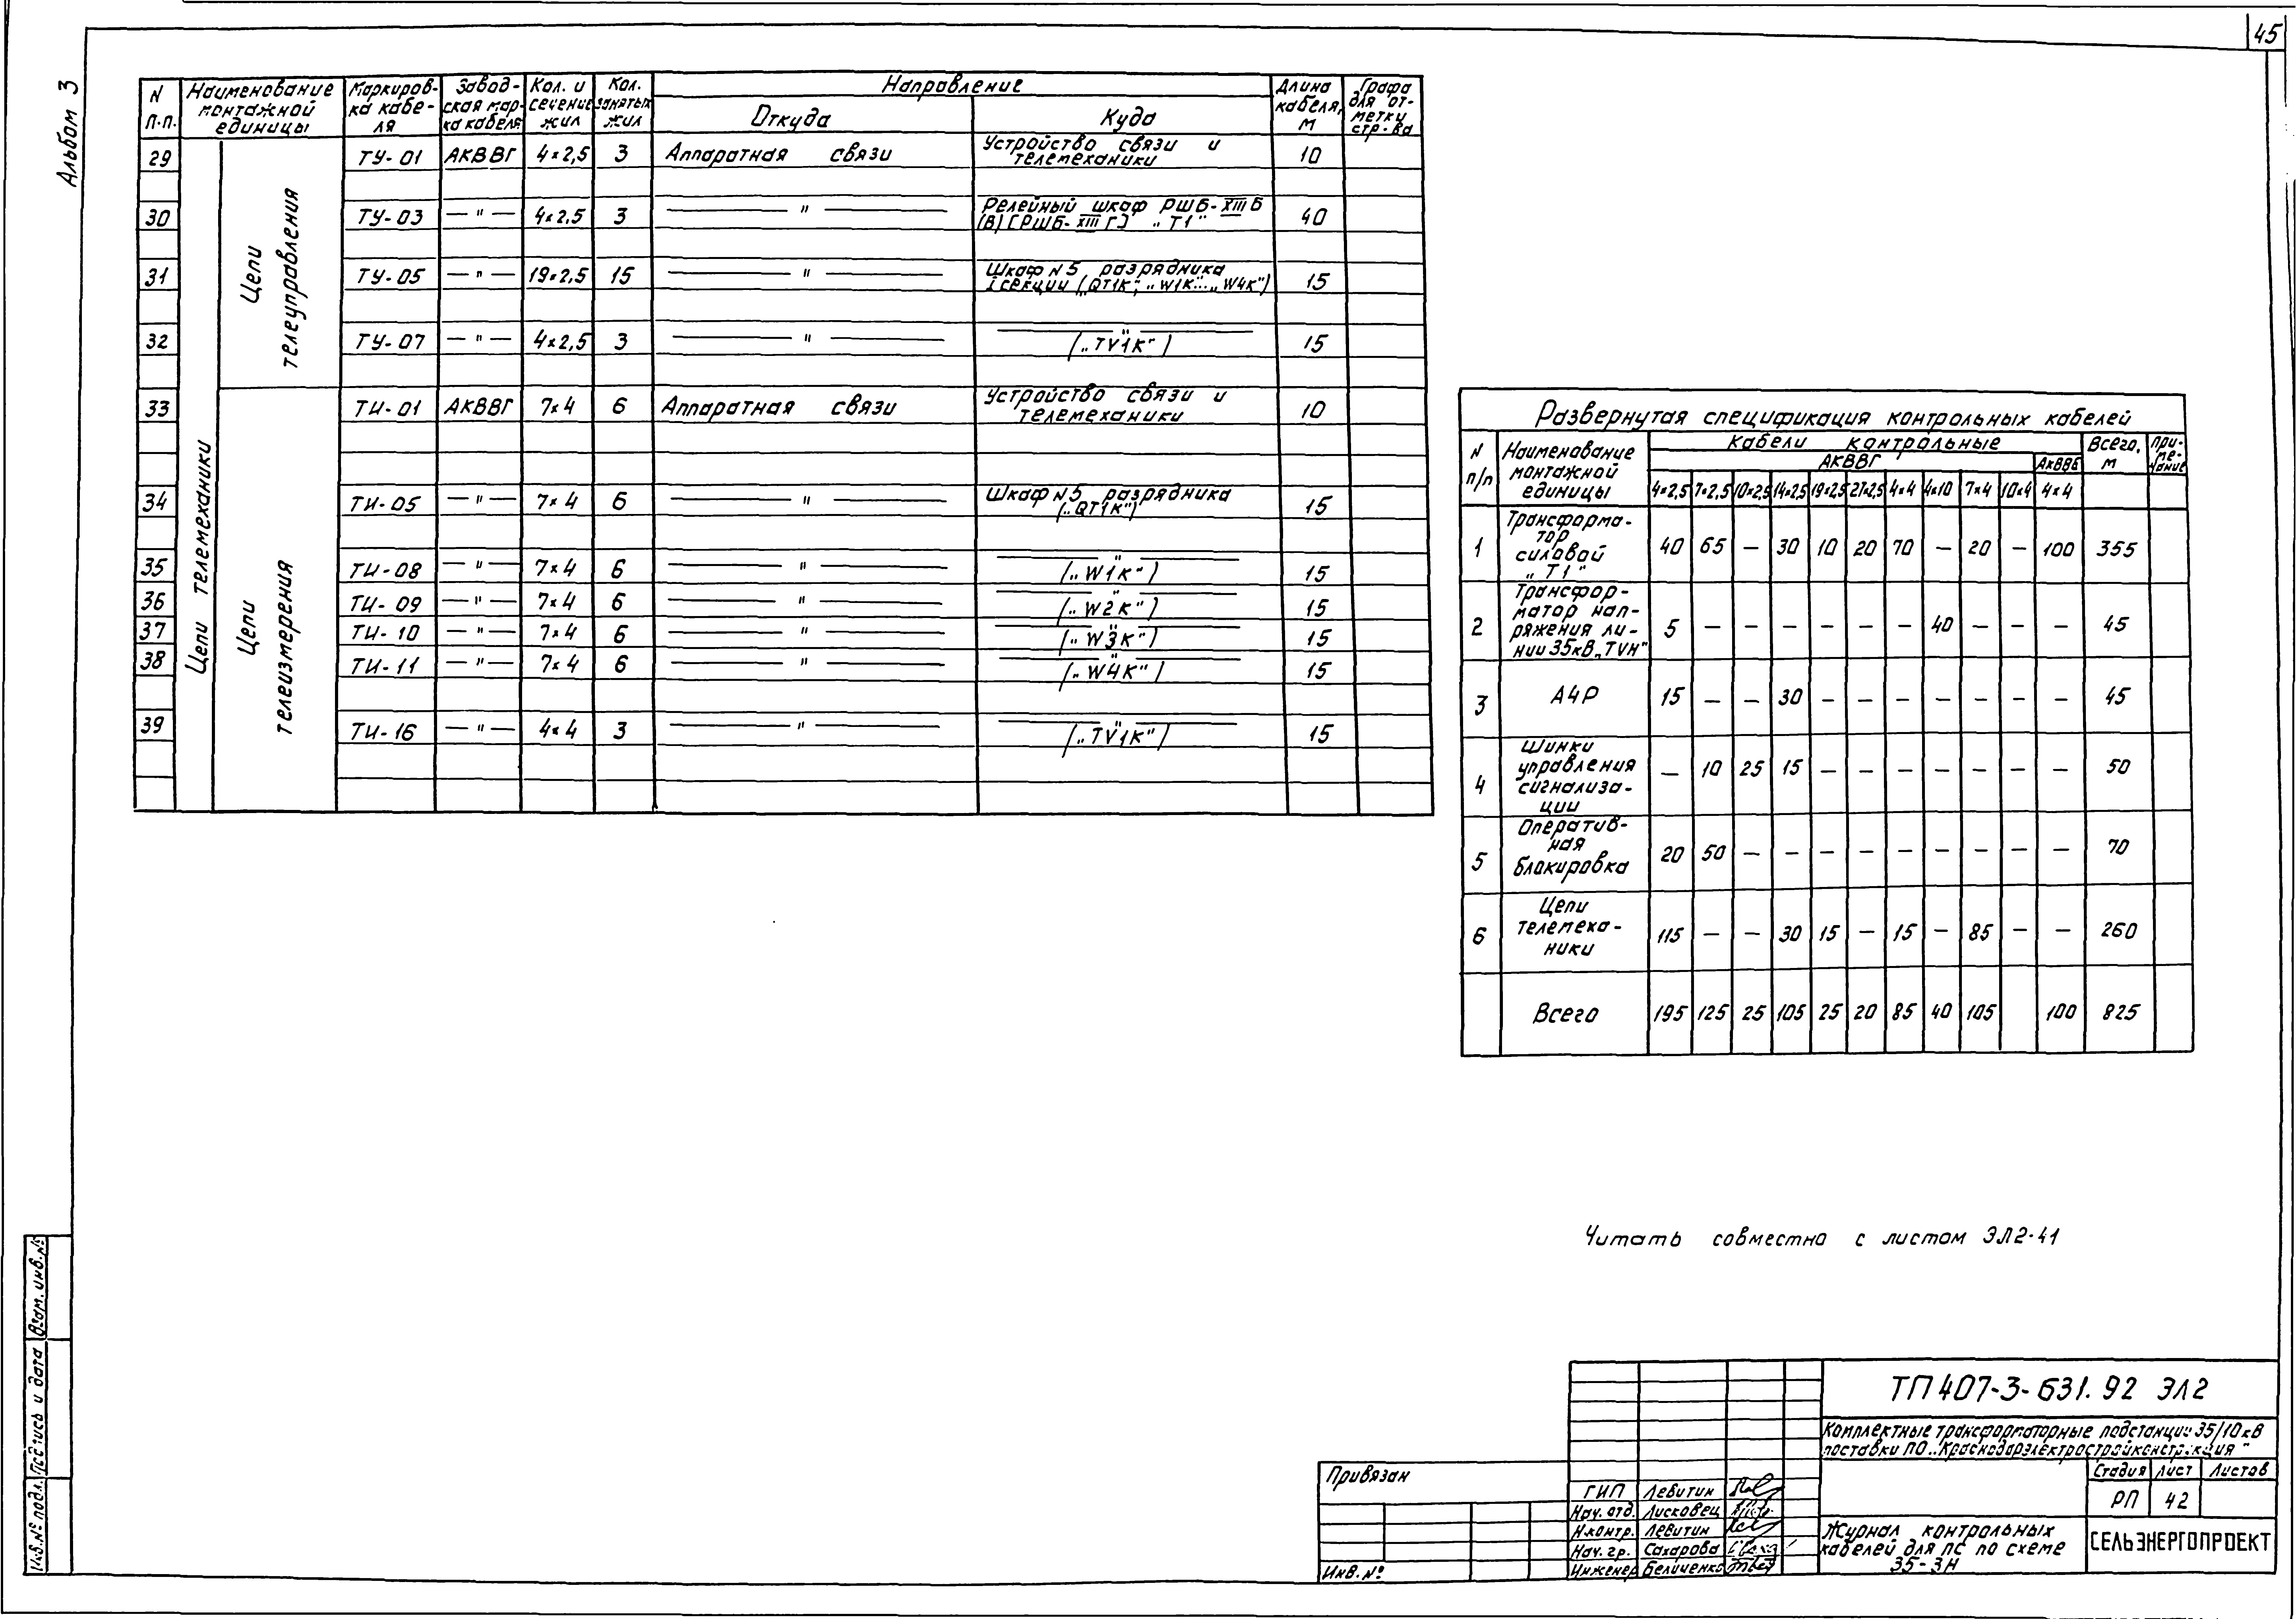 45
Альбом 3
N п.п. | Наименование монтажной единицы | Маркировка кабеля | Заводская марка кабеля | Кол. и сечение жил | Кол. занятых жил | Направление | Длина кабеля, м | Графа для отметки стр-ва
Откуда | Куда
Цепи телемеханики
Цепи телеуправления
29 | ТУ-01 | АКВВГ | 4×2,5 | 3 | Аппаратная связи | Устройство связи и телемеханики | 10
30 | ТУ-03 | — " — | 4×2.5 | 3 | — " — | Релейный шкаф РШБ-XIII Б (В) [РШБ-XIII Г] „Т1" | 40
31 | ТУ-05 | — " — | 19×2,5 | 15 | — " — | Шкаф N5 разрядника I секции („QT1K", „W1K"... „W4K") | 15
32 | ТУ-07 | — " — | 4×2,5 | 3 | — " — | — " — („TV1K") | 15
Цепи телеизмерения
33 | ТИ-01 | АКВВГ | 7×4 | 6 | Аппаратная связи | Устройство связи и телемеханики | 10
34 | ТИ-05 | — " — | 7×4 | 6 | — " — | Шкаф N5 разрядника („QT1K") | 15
35 | ТИ-08 | — " — | 7×4 | 6 | — " — | — " — („W1K") | 15
36 | ТИ-09 | — " — | 7×4 | 6 | — " — | — " — („W2K") | 15
37 | ТИ-10 | — " — | 7×4 | 6 | — " — | — " — („W3K") | 15
38 | ТИ-11 | — " — | 7×4 | 6 | — " — | — " — („W4K") | 15
39 | ТИ-16 | — " — | 4×4 | 3 | — " — | — " — („TV1K") | 15
Развернутая спецификация контрольных кабелей
N п/п | Наименование монтажной единицы | Кабели контрольные | Всего, м | Примечание
АКВВГ | АКВВБ
4×2,5 | 7×2,5 | 10×2,5 | 14×2,5 | 19×2,5 | 27×2,5 | 4×4 | 4×10 | 7×4 | 10×4 | 4×4
1 | Трансформатор силовой „Т1" | 40 | 65 | — | 30 | 10 | 20 | 70 | — | 20 | — | 100 | 355
2 | Трансформатор напряжения линии 35кВ „TVH" | 5 | — | — | — | — | — | — | 40 | — | — | — | 45
3 | АЧР | 15 | — | — | 30 | — | — | — | — | — | — | — | 45
4 | Шинки управления сигнализации | — | 10 | 25 | 15 | — | — | — | — | — | — | — | 50
5 | Оперативная блокировка | 20 | 50 | — | — | — | — | — | — | — | — | — | 70
6 | Цепи телемеханики | 115 | — | — | 30 | 15 | — | 15 | — | 85 | — | — | 260
Всего | 195 | 125 | 25 | 105 | 25 | 20 | 85 | 40 | 105 | 100 | 825
Читать совместно с листом ЭЛ2-41
Взам. инв. №
Подпись и дата
Инв. № подл.
Привязан
Инв. №
ТП 407-3-631.92 ЭЛ2
Комплектные трансформаторные подстанции 35/10 кВ
поставки ПО „Краснодарэлектростройконструкция"
Стадия | Лист | Листов
РП | 42
ГИП Левитин
Нач. отд. Лисковец
Н.контр. Левитин
Нач. гр. Сахарова
Инженер Беличенко
Журнал контрольных
кабелей для ПС по схеме
35-3Н
СЕЛЬЭНЕРГОПРОЕКТ